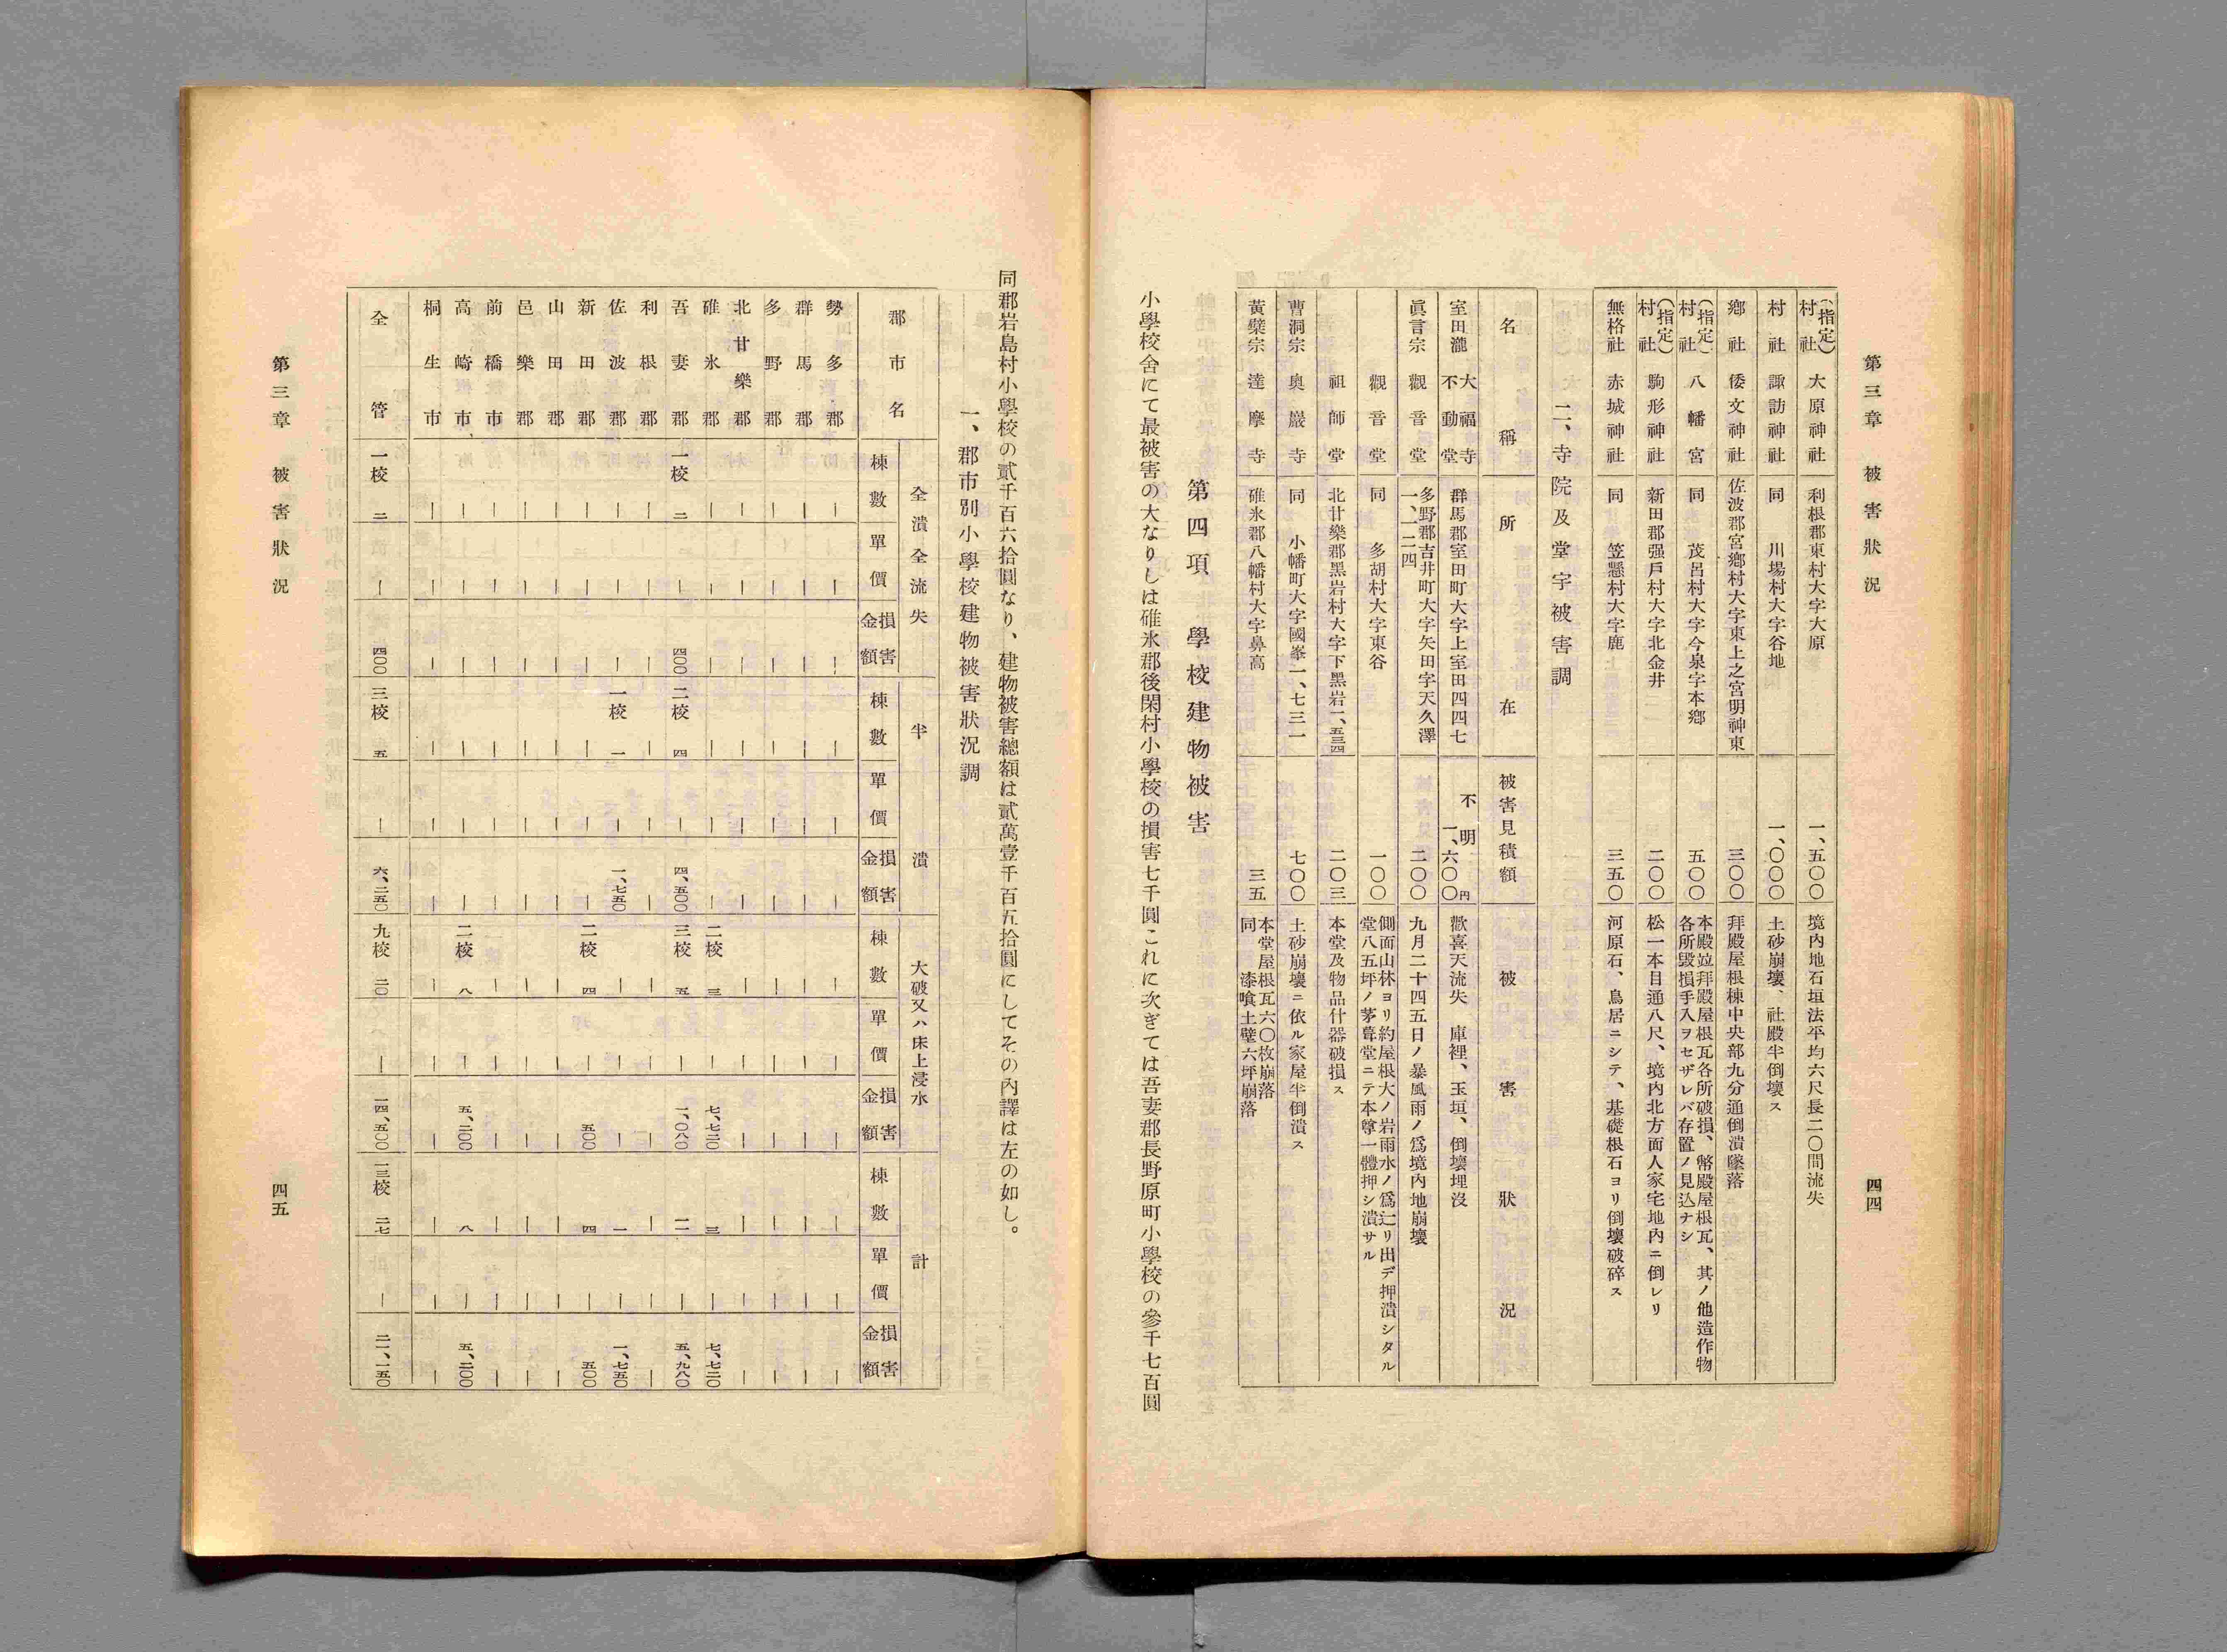 第三章 被害狀況
四四
(指定)村社 大原神社 利根郡東村大字大原 一、五〇〇 境內地石垣法平均六尺長二〇間流失
村社 諏訪神社 同 川場村大字谷地 一、〇〇〇 土砂崩壞、社殿半倒壞ス
鄕社 倭文神社 佐波郡宮鄕村大字東上之宮明神東 三〇〇 拜殿屋根棟中央部九分通倒潰墜落
(指定)村社 八幡宮 同 茂呂村大字今泉字本鄕 五〇〇 本殿竝拜殿屋根瓦各所破損、幣殿屋根瓦、其ノ他造作物各所毀損手入ヲセザレバ存置ノ見込ナシ
(指定)村社 駒形神社 新田郡强戶村大字北金井 二〇〇 松一本目通八尺、境內北方面人家宅地內ニ倒レリ
無格社 赤城神社 同 笠懸村大字鹿 三五〇 河原石、鳥居ニシテ、基礎根石ヨリ倒壞破碎ス
二、寺院及堂宇被害調
名稱 所在 被害見積額 被害狀況
室田瀧不動堂 大福寺 群馬郡室田町大字上室田四四七 不明 一、六〇〇円 歡喜天流失 庫裡、玉垣、倒壞埋沒
眞言宗 觀音堂 多野郡吉井町大字矢田字天久澤一、一二四 二〇〇 九月二十四五日ノ暴風雨ノ爲境內地崩壞
觀音堂 同 多胡村大字東谷 一〇〇 側面山林ヨリ約屋根大ノ岩雨水ノ爲辷リ出デ押潰シタル堂八五坪ノ茅葺堂ニテ本尊一體押シ潰サル
祖師堂 北甘樂郡黑岩村大字下黑岩一、五三四 二〇三 本堂及物品什器破損ス
曹洞宗 奧巖寺 同 小幡町大字國峯一、七三一 七〇〇 土砂崩壞ニ依ル家屋半倒潰ス
黃檗宗 達摩寺 碓氷郡八幡村大字鼻高 三五 本堂屋根瓦六〇枚崩落 同 漆喰土壁六坪崩落
第四項 學校建物被害
小學校舍にて最被害の大なりしは碓氷郡後閑村小學校の損害七千圓これに次ぎては吾妻郡長野原町小學校の參千七百圓
同郡岩島村小學校の貳千百六拾圓なり、建物被害總額は貳萬壹千百五拾圓にしてその內譯は左の如し。
一、郡市別小學校建物被害狀況調
郡市名 全潰全流失 半潰 大破又ハ床上浸水 計
棟數 單價 損害金額 棟數 單價 損害金額 棟數 單價 損害金額 棟數 單價 損害金額
勢多郡 | | | | | | | | | | | |
群馬郡 | | | | | | | | | | | |
多野郡 | | | | | | | | | | | |
北甘樂郡 | | | | | | | | | | | |
碓氷郡 | | | | | | 二校 三 | 七、七二〇 三 | 七、七二〇
吾妻郡 一校 二 | 四〇〇 二校 四 | 四、五〇〇 三校 五 | 一、〇八〇 一一 | 五、九八〇
利根郡 | | | | | | | | | | | |
佐波郡 | | | 一校 一 | 一、七五〇 | | | 一 | 一、七五〇
新田郡 | | | | | | 二校 四 | 五〇〇 四 | 五〇〇
山田郡 | | | | | | | | | | | |
邑樂郡 | | | | | | | | | | | |
前橋市 | | | | | | | | | | | |
高崎市 | | | | | | 二校 八 | 五、二〇〇 八 | 五、二〇〇
桐生市 | | | | | | | | | | | |
全管 一校 二 | 四〇〇 三校 五 | 六、二五〇 九校 二〇 | 一四、五〇〇 一三校 二七 | 二一、一五〇
第三章 被害狀況
四五